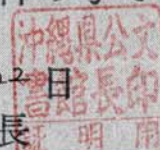 沖縄県公文
書館長印
証明用
日
長